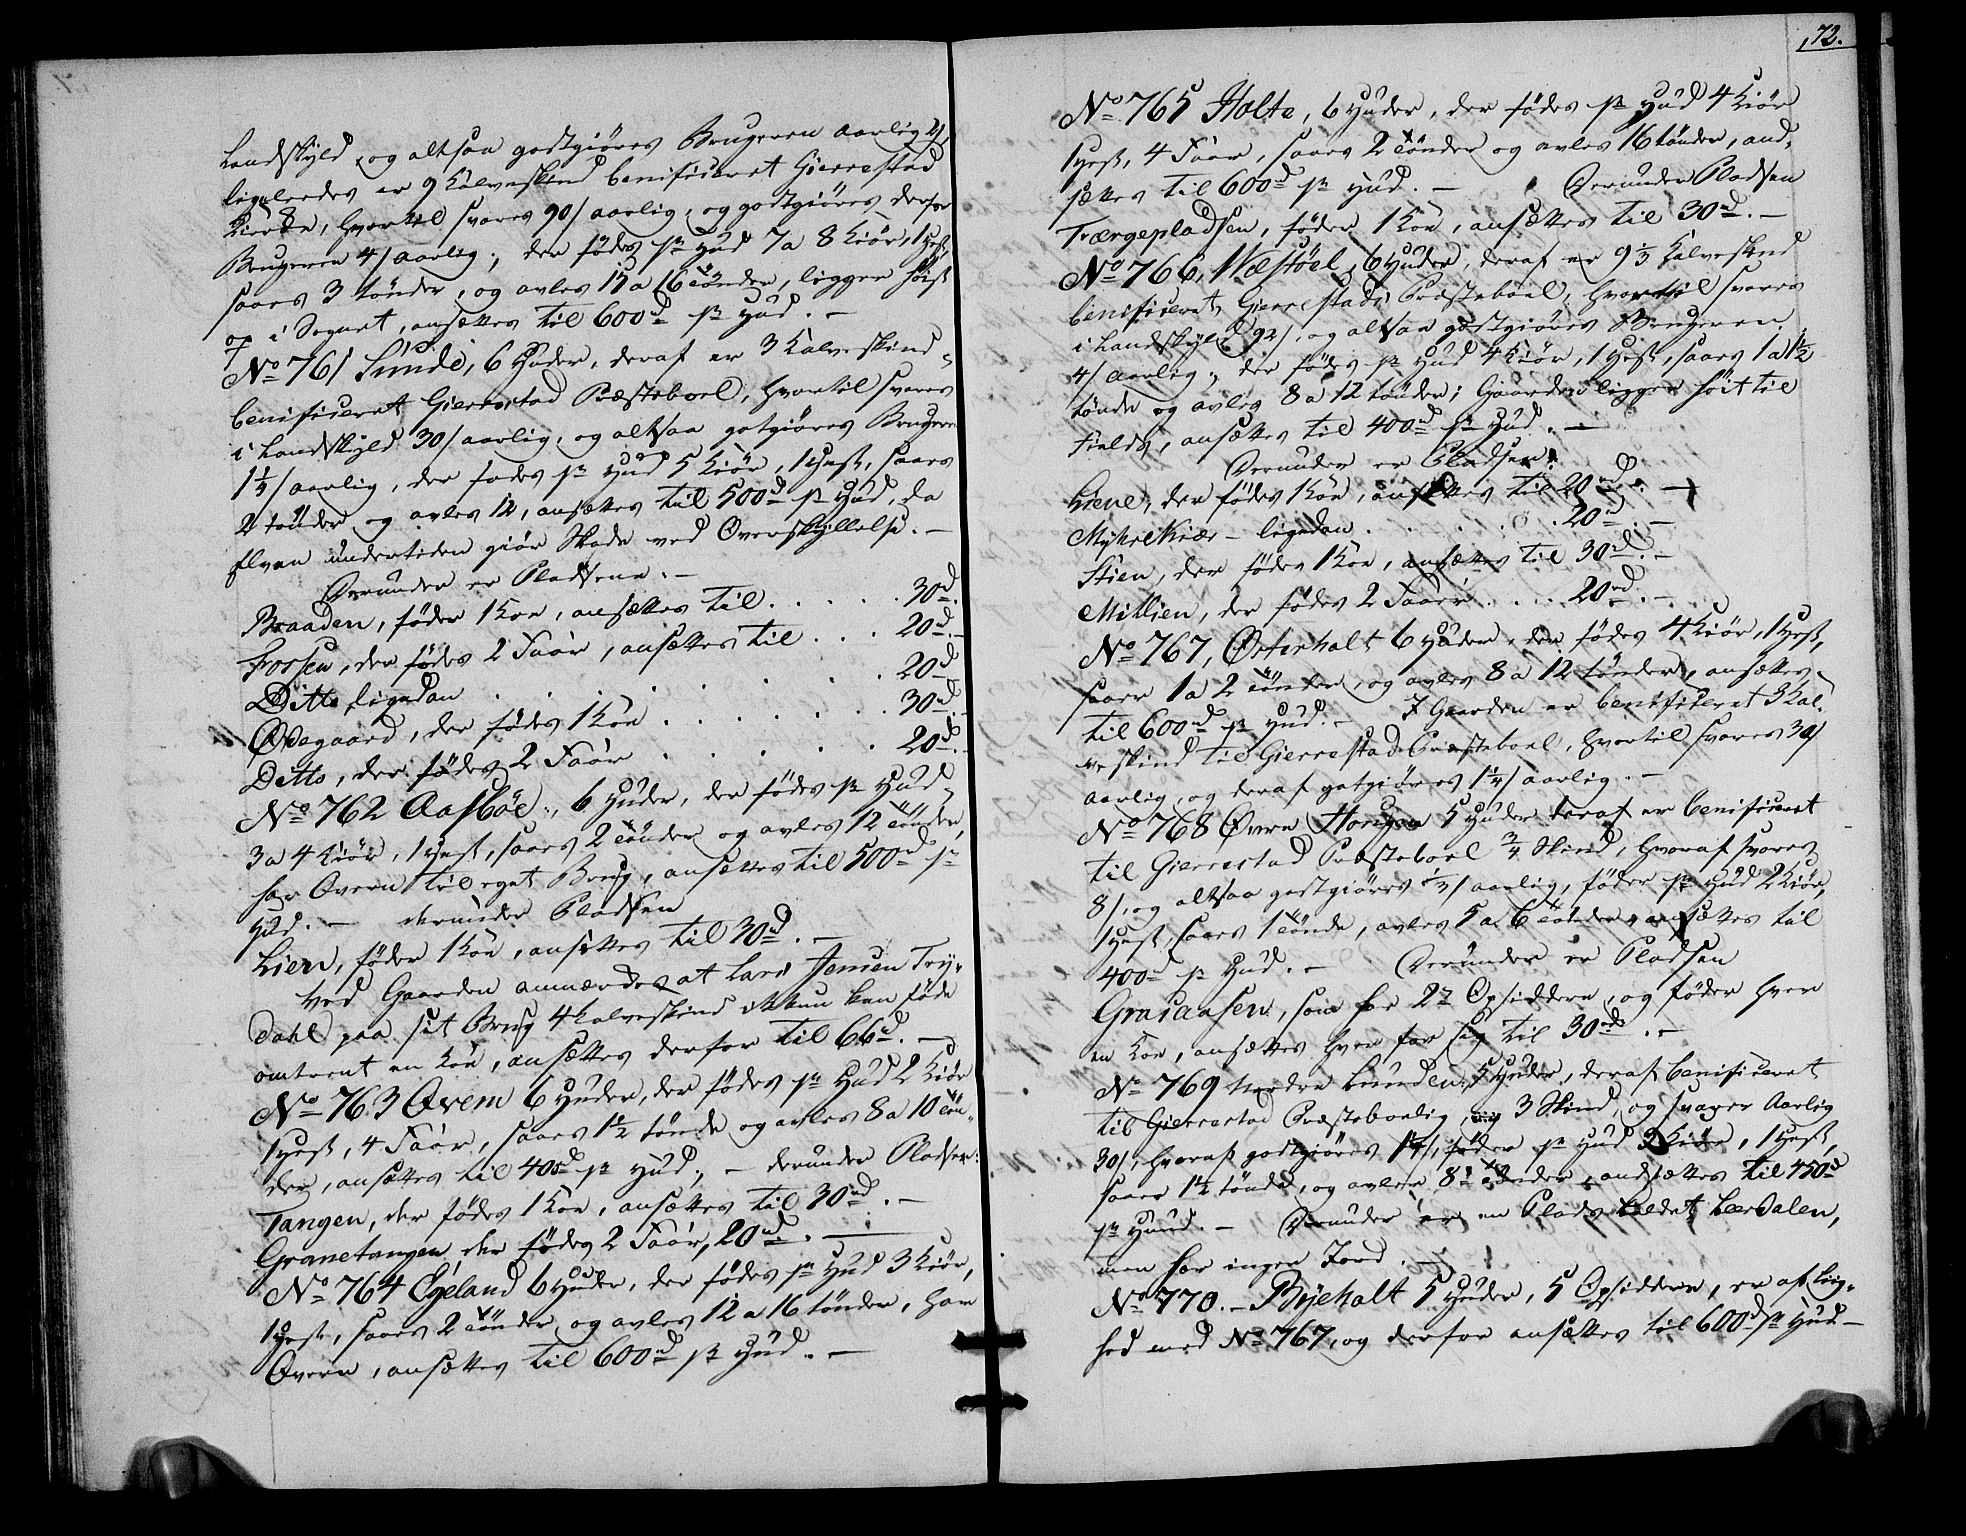 Landskyld, og altsaa godtgiøres Brugeren aarlig 4/,
ligeleedes er 9 Kalveskind benificeret Gierrestad
Kirke, hvortil svares 90/ aarlig, og godtgiøres derfor
Brugeren 4/ aarlig; der fødes pr Hud 7 a 8 Kiør, 1 Hest,
saaes 3 tønder, og avles 15 a 16 tønder, ligger høist
op i Sognet, ansættes til 600rd pr Hud. –
No 761 Sunde, 6 Huder, deraf er 3 Kalveskind
benificeret Gierrestad Præsteboel, hvortil svares
i Landskyld 30/ aarlig, og altsaa gotgiøres Brugeren
1 1/4/ aarlig, der fødes pr Hud 5 Kiør, 1 Hest, saaes
2 tønder og avles 12, ansættes til 500rd pr Hud, da
Elven undertiden giør Skade ved Overskyllelse. –
Derunder er Pladsene. –
Braaden, føder 1 Koe, ansættes til . . . . . 30rd.
Fossen, der fødes 2 Faar, ansættes til . . . 20rd. –
Ditto, ligedan . . . . . . . . 20rd
Ødegaard, der fødes 1 Koe . . . . . . 30rd. –
Ditto, der fødes 2 Faar . . . . . . 20rd. –
No 762 Aasbøe, 6 Huder, der fødes pr Hud
3 a 4 Kiør, 1 Hest, saaes 2 tønder og avles 12 tønder,
har Qvern til eget Brug, ansættes til 500rd pr
Hud. – derunder Pladsen
Lien, føder 1 Koe, ansættes til 30rd. –
Ved Gaarden anmærkes at Lars Jensen Try-
dahl paa sit Brug 4 Kalveskind ikkun kan føde
omtrent en Koe, ansættes derfor til 66rd. –
No 763 Qvern 6 Huder, der fødes pr Hud 2 Kiør
1 Hest, 4 Faar, saaes 1 1/2 tønde og avles 8 a 10 tøn-
der, ansættes til 400rd pr Hud; – derunder Pladsen:
Tangen, der fødes 1 Koe, ansættes til 30rd. –
Granetangen, der fødes 2 Faar, 20rd. –
No 764 Egeland 6 Huder, der fødes pr Hud 3 Kiør,
1 Hest, saaes 2 tønder og avles 12 a 16 tønder, har
Qvern, ansættes til 600rd pr Hud. –
72.
No 765 Holte, 6 Huder, der fødes pr Hud 4 Kiør
1 Hest, 4 Faar, saaes 2 tønder og avles 16 tønder, and-
sættes til 600rd pr Hud. – Derunder Pladsen
Tværgepladsen, føder 1 Koe, ansættes til 30rd. –
No 766, Wæstøel, 6 Huder, deraf er 9 1/3 Kalveskind
benificeret Gierrestads Præsteboel, hvortil svares
i Landskyld 92/, og altsaa godtgiøres Brugeren
4/ aarlig; der fødes pr Hud 4 Kiør, 1 Hest, saaes 1 a 1 1/2
tønde og avles 8 a 12 tønder; Gaarden ligger høit til
Fields, ansættes til 400rd pr Hud. –
Derunder er Pladsen:
Liene, der fødes 1 Koe, ansættes til 20rd. –
Myhrekiær – ligedan . . . . . . 20rd. –
Stien, der fødes 1 Koe, ansættes til 30rd. –
Millien, der fødes 2 Faar . . . . 20rd. –
No 767, Østerholt 6 Huder, der fødes 4 Kiør, 1 Hest,
saaes 1 a 2 tønder, og avles 8 a 12 tønder, ansættes
til 600rd pr Hud. – I Gaarden er benificeret 3 Kal-
veskind til Gierrestad Præsteboel, hvortil svares 30/
aarlig, og deraf gotgiøres 1 1/4/ aarlig. –
No 768 Øvre Horigen 5 Huder deraf er benificeret
til Gierrestad Præsteboel 3/4 Skind, hvoraf svares
8/, og altsaa godtgiøres 1/3/ aarlig, føder pr Hud 2 Kiør,
1 Hest, saaes 1 tønde, avles 5 a 6 tønder, ansættes til
400rd pr Hud. – Derunder er Pladsen
Graiaasen, som har 2de Opsiddere, og føder hver
en Koe, ansættes hver for sig til 30rd. –
No 769 Nedre Lunden, 5 Huder, deraf benificeret
til Gierrestad Præsteboelig 3 Skind, og svarer Aarlig
30/, hvoraf godtgiøres 1 1/4/, føder pr Hud 3 Kiør, 1 Hest,
saaer 1 1/2 tønde, og avler 8 tønder, andsættes til 450rd
pr Huud. – Derunder er en Plads kaldet Leerdalen,
men har ingen Jord. –
No 770. – Bÿeholt 5 Huder, 5 Opsiddere, er af Liig-
hed med No 767, og derfor ansættes til 600rd pr Hud –